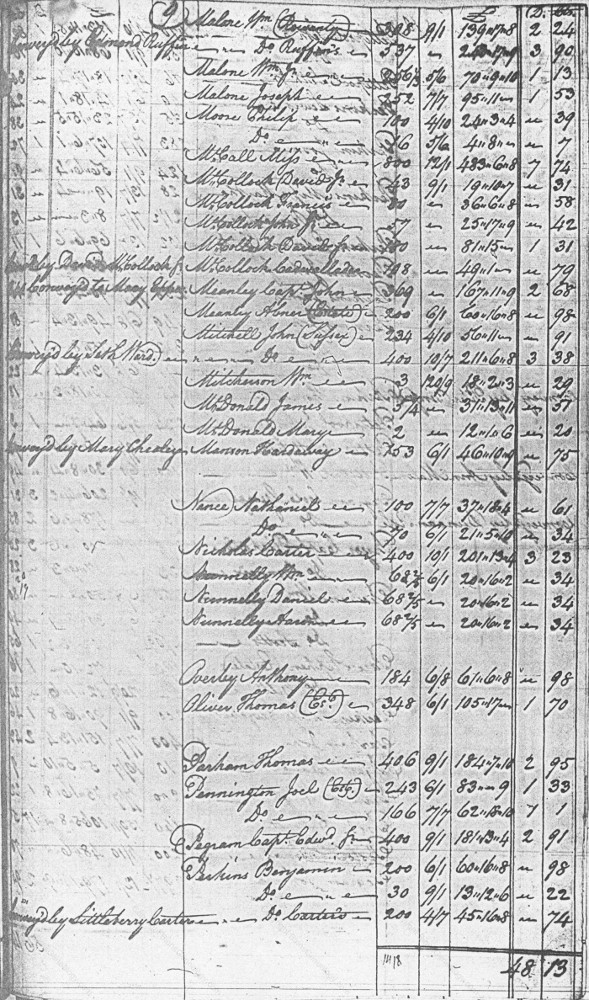 (9) Malone Wm (County) 398 9/1 139"7"8 2 24
Convey'd by Edmond Ruffin Do Ruffin's 537 3 90
Malone Wm Jr 5/6 70"9"10 1 13
Malone Joseph 252 7/7 95"11" 1 53
Moore Philip 100 4/10 24"3"4 " 39
Do 4"8" " 7
McCall Miss 800 12/1 483"6"8 7 74
McCollock David Jr 43 9/1 19"10"7 " 31
McCollock Francis 80 " 36"6"8 " 58
McCollock John Jr 57 " 25"17"9 " 42
McCollock David " 81"15" 1 31
David McCollock Jr McCollock Cadwallader 108 " 49"1" " 79
Convey'd to Mary Meanley Capt. John 369 " 167"11"9 2 68
Meanley Abner (Estate) 200 6/1 60"16"8 " 98
Mitchell John (Sussex) 234 4/10 56"11" " 91
Convey'd by Seth Ward Do 400 10/7 211"6"8 3 38
Mitcherson Wm 3 120/9 18"2"3 " 29
McDonald James 5 1/4 " 31"13"11 " 51
McDonald Mary 2 " 12"1"6 " 20
Convey'd by Mary Cheeley Manson Hardaway 153 6/1 46"10"9 " 75
Nance Nathaniel 100 7/7 37"18"4 " 61
Do 70 6/1 21"5"10 " 34
Nicholas Carter 400 10/1 201"13"4 3 23
Nunnelly Wm 68 2/5 6/1 20"16"2 " 34
Nunnelly Daniel 68 2/5 " 20"16"2 " 34
Nunnelly 68 2/5 " 20"16"2 " 34
Overley Anthony 184 6/8 61"6"8 " 98
Oliver Thomas 348 6/1 105"17" 1 70
Parham Thomas 406 9/1 184"7"10 2 95
Pennington Joel 243 6/1 83""9 1 33
Do 166 7/7 62"18"10 1 1
Pegram Capt. Edwd. Jr 400 9/1 181"13"4 2 91
Perkins Benjamin 200 6/1 60"16"8 " 98
Do 30 9/1 13"12"6 " 22
Convey'd by Littleberry Carter Do Carter's 200 4/7 45"16"8 " 74
48 13